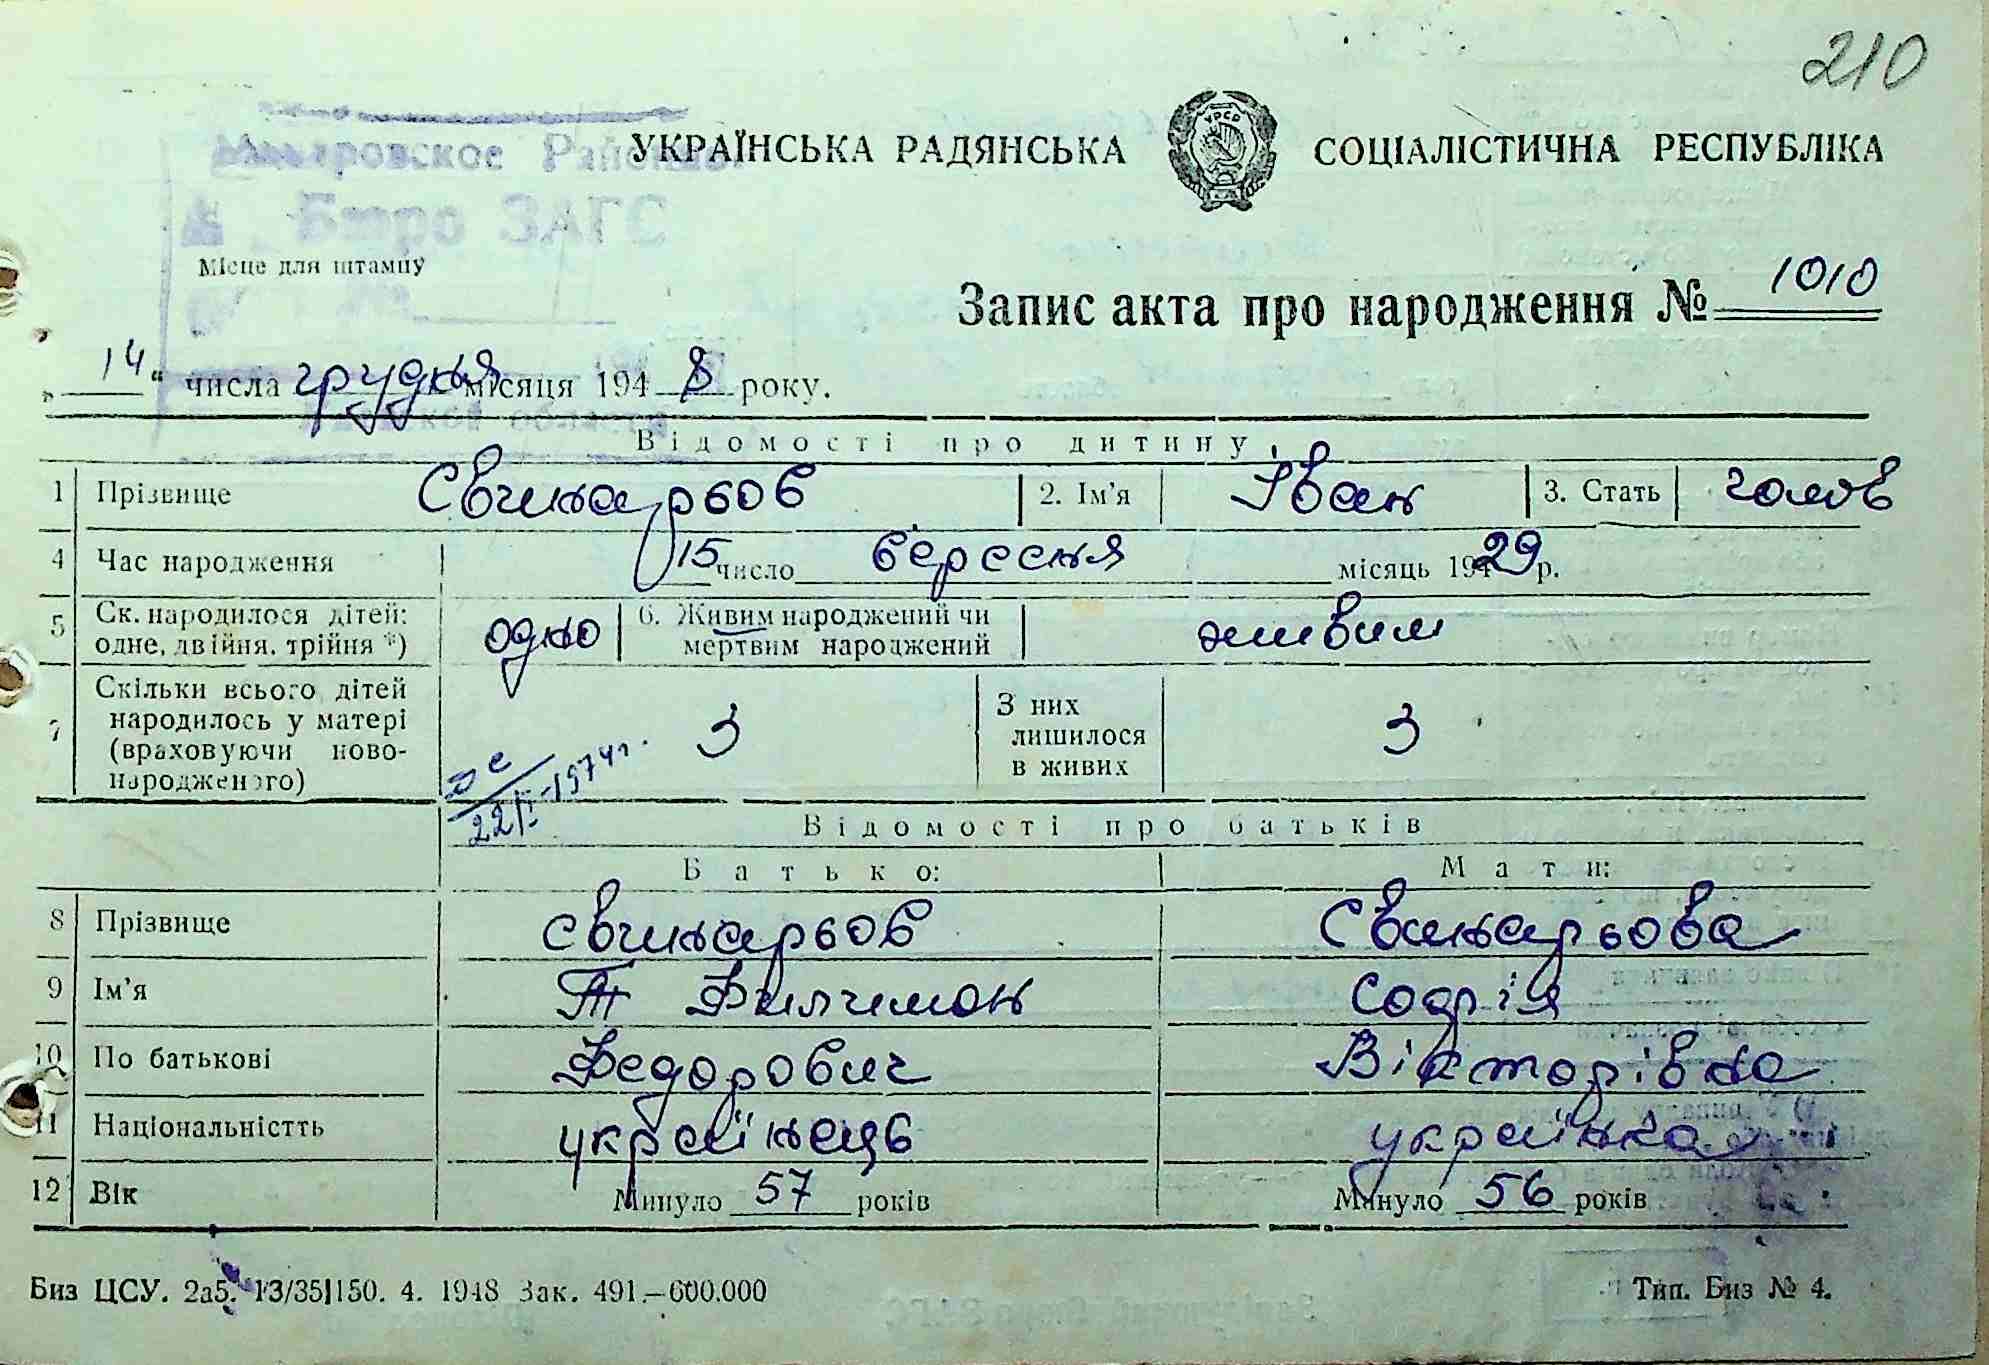 210
УКРАЇНСЬКА РАДЯНСЬКА СОЦІАЛІСТИЧНА РЕСПУБЛІКА
УРСР
Бюро ЗАГС
Місце для штампу
Запис акта про народження № 1010
„ 14 “ числа грудня місяця 1948 року.
Відомості про дитину
1 Прізвище Свинарьов 2. Ім'я Іван 3. Стать чолов
4 Час народження 15 число вересня місяць 1929 р.
5 Ск. народилося дітей: одно 6. Живим народжений чи живим
одне, двійня, трійня *) мертвим народжений
7 Скільки всього дітей народилось у матері (враховуючи ново-народженого) 3 З них лишилося в живих 3
22/І-1974г.
Відомості про батьків
Батько: Мати:
8 Прізвище Свинарьов Свинарьова
9 Ім'я Филимон Софія
10 По батькові Федорович Вікторівна
11 Національністть українець українка
12 Вік Минуло 57 років Минуло 56 років
Биз ЦСУ. 2а5. 13/35|150. 4. 1948 Зак. 491.—600.000 Тип. Биз № 4.